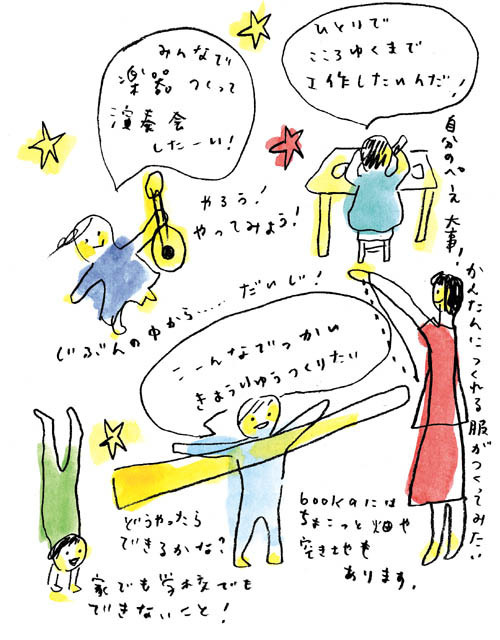 みんなで
楽器つくって
演奏会
したーい！
ひとりで
こころゆくまで
工作したいんだ！
自分のペース 大事！
やろう！
やってみよう！
じぶんの中から……だいじ！
かんたんにつくれる服がつくってみたい
こーんなでっかい
きょうりゅうつくりたい
どうやったら
できるかな？
家でも学校でも
できないこと！
bookaには
ちょこっと畑や
空き地も
あります。